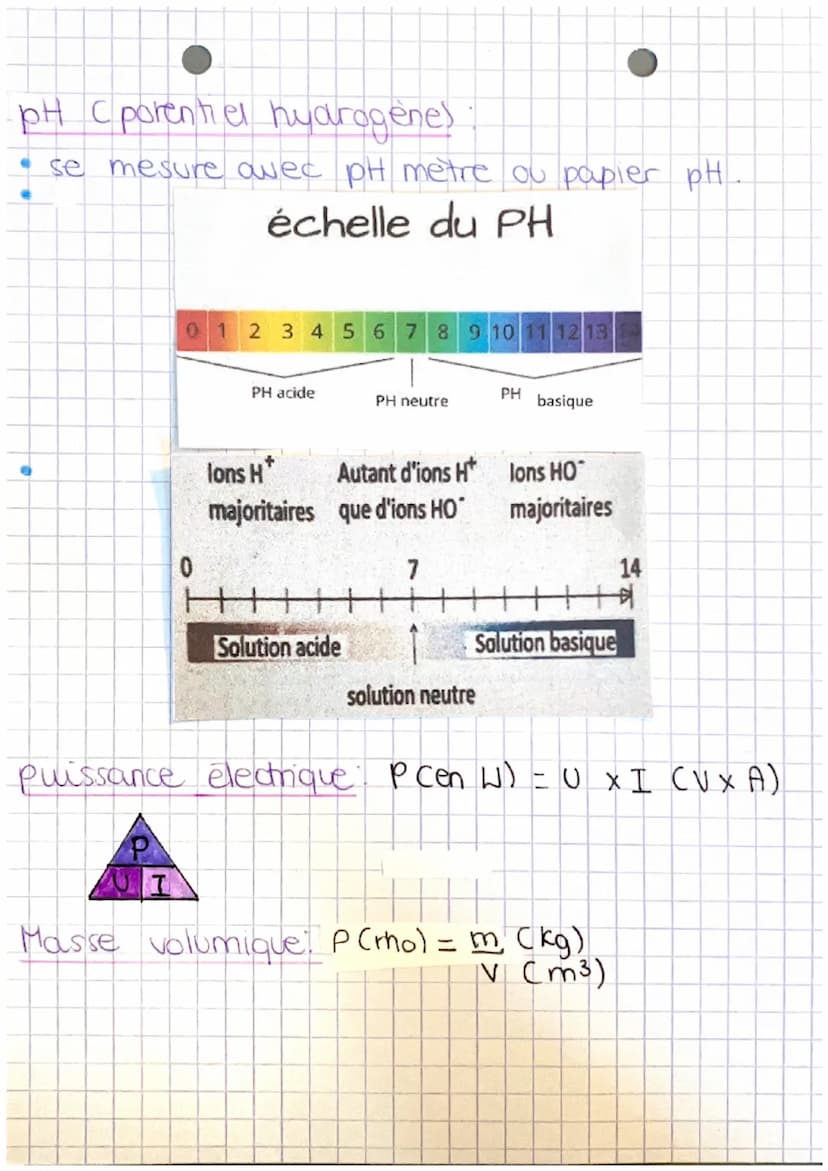 pH (potentiel hydrogène) :
• se mesure avec pH mètre ou papier pH.
échelle du PH
0 1 2 3 4 5 6 7 8 9 10 11 12 13 14
PH acide
PH neutre
PH basique
Ions H⁺ majoritaires
Autant d'ions H⁺ que d'ions HO⁻
Ions HO⁻ majoritaires
0 7 14
Solution acide
Solution basique
solution neutre
puissance électrique : P (en W) = U x I (V x A)
P
U I
Masse volumique : ρ (rho) = m (kg)
V (m³)